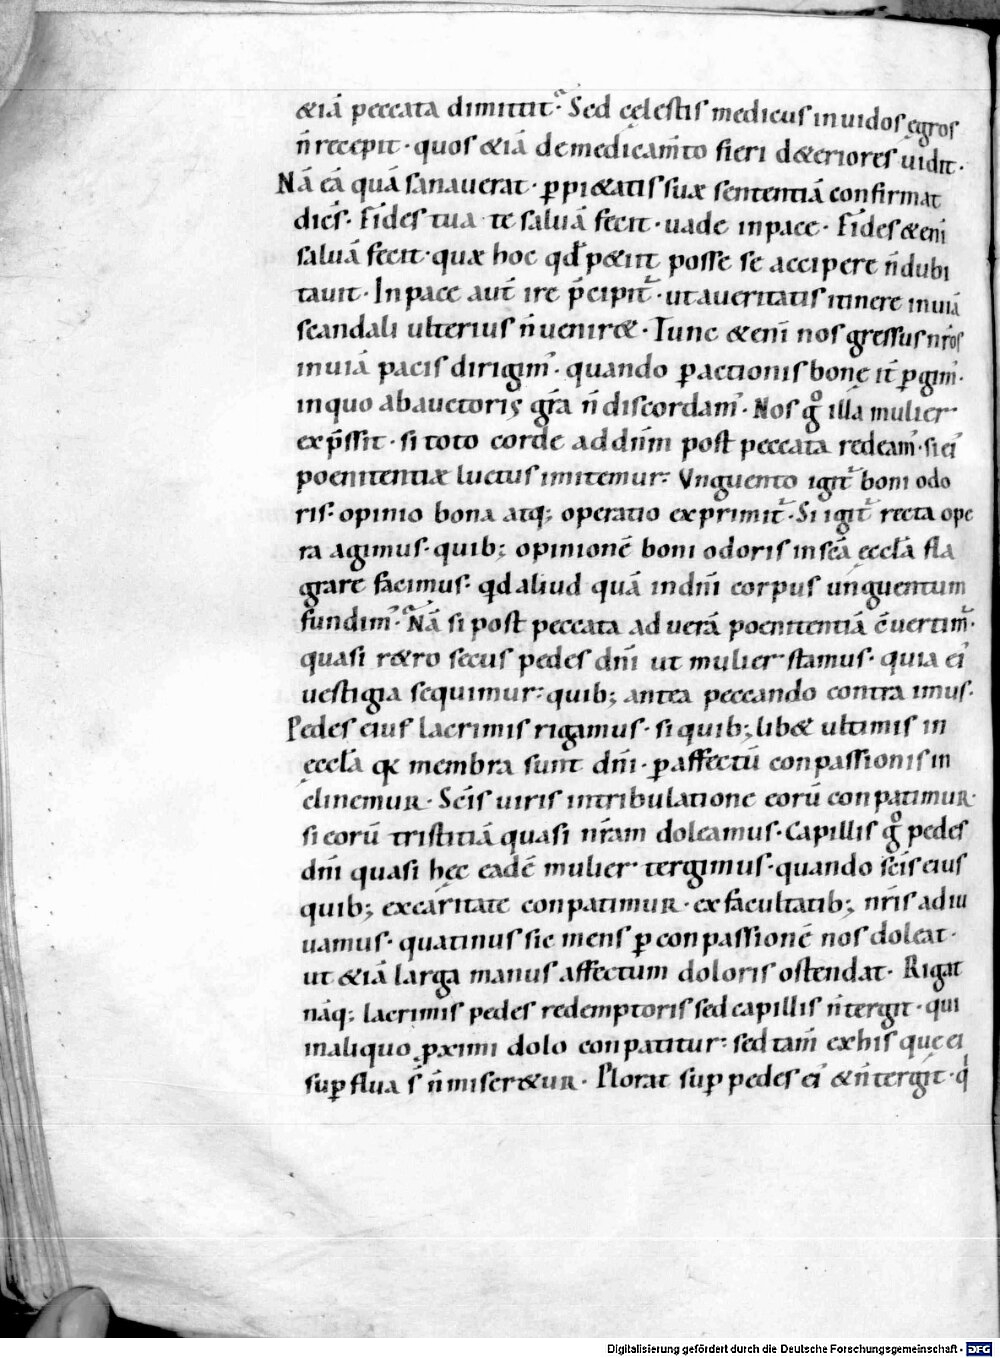 &iā peccata dimittit. Sed cęlestis medicus inuidos ęgros
n̄ recepit · quos &iā de medicam̄to fieri d&eriores uidit ·
Nā eā quā sanauerat · ꝑ pi&atis suæ sententiā confirmat
dicēs · Fides tua te saluā fecit · uade in pace · Fides &eni
saluā fecit · quæ hoc qđ p&iit posse se accipere n̄ dubi
tauit · In pace aut̄ ire p̄cipit᷑ · ut a ueritatis itinere in uiā
scandali ulterius n̄ uenir& · Tunc &eni nos gressus nr̄os
in uiā pacis dirigim᾿ · quando ꝑ actionis bonę it̄ ꝑgim᾿ ·
in quo ab auctoris gr̄a n̄ discordam᾿ · Nos gͦ illa mulier
exp̄ssit · si toto corde ad dn̄m post peccata redeam᾿ · si ei᾿
poenitentiæ luctus imitemur : Vnguento igit᷑ boni odo
ris · opinio bona atq; operatio exprimit᷑ · Si igit᷑ recta ope
ra agimus · quib; opinionē boni odoris in sc̄a ęccl̄a fla
grare facimus · qd aliud quā in dn̄i corpus unguentum
fundim᾿ · Nā si post peccata ad uerā poenitentiā c̄uertim᷑ ·
quasi r&ro secus pedes dn̄i ut mulier stamus · quia ei᾿
uestigia sequimur : quib; antea peccando contra imus ·
Pedes eius lacrimis rigamus · si quib; lib& ultimis in
ęccl̄a qͥ membra sunt dn̄i · ꝑ affectū conpassionis in
clinemur · Sc̄is uiris in tribulatione eorū conpatimur ·
si eorū tristitiā quasi nr̄am doleamus · Capillis gͦ pedes
dn̄i quasi hęc eadē mulier tergimus · quando sc̄is eius
quib; ex caritate conpatimur · ex facultatib; nr̄is adiu
uamus · quatinus sic mens ꝑ conpassionē nos doleat ·
ut &iā larga manus affectum doloris ostendat · Rigat
nāq; lacrimis pedes redemptoris sed capillis n̄ tergit · qui
in aliquo ꝓximi dolo conpatitur : sed tam̄ ex his que ei
suꝑflua s̄ n̄ miser&ur · Plorat suꝑ pedes ei᾿ & n̄ tergit · qͥ
Digitalisierung gefördert durch die Deutsche Forschungsgemeinschaft - DFG